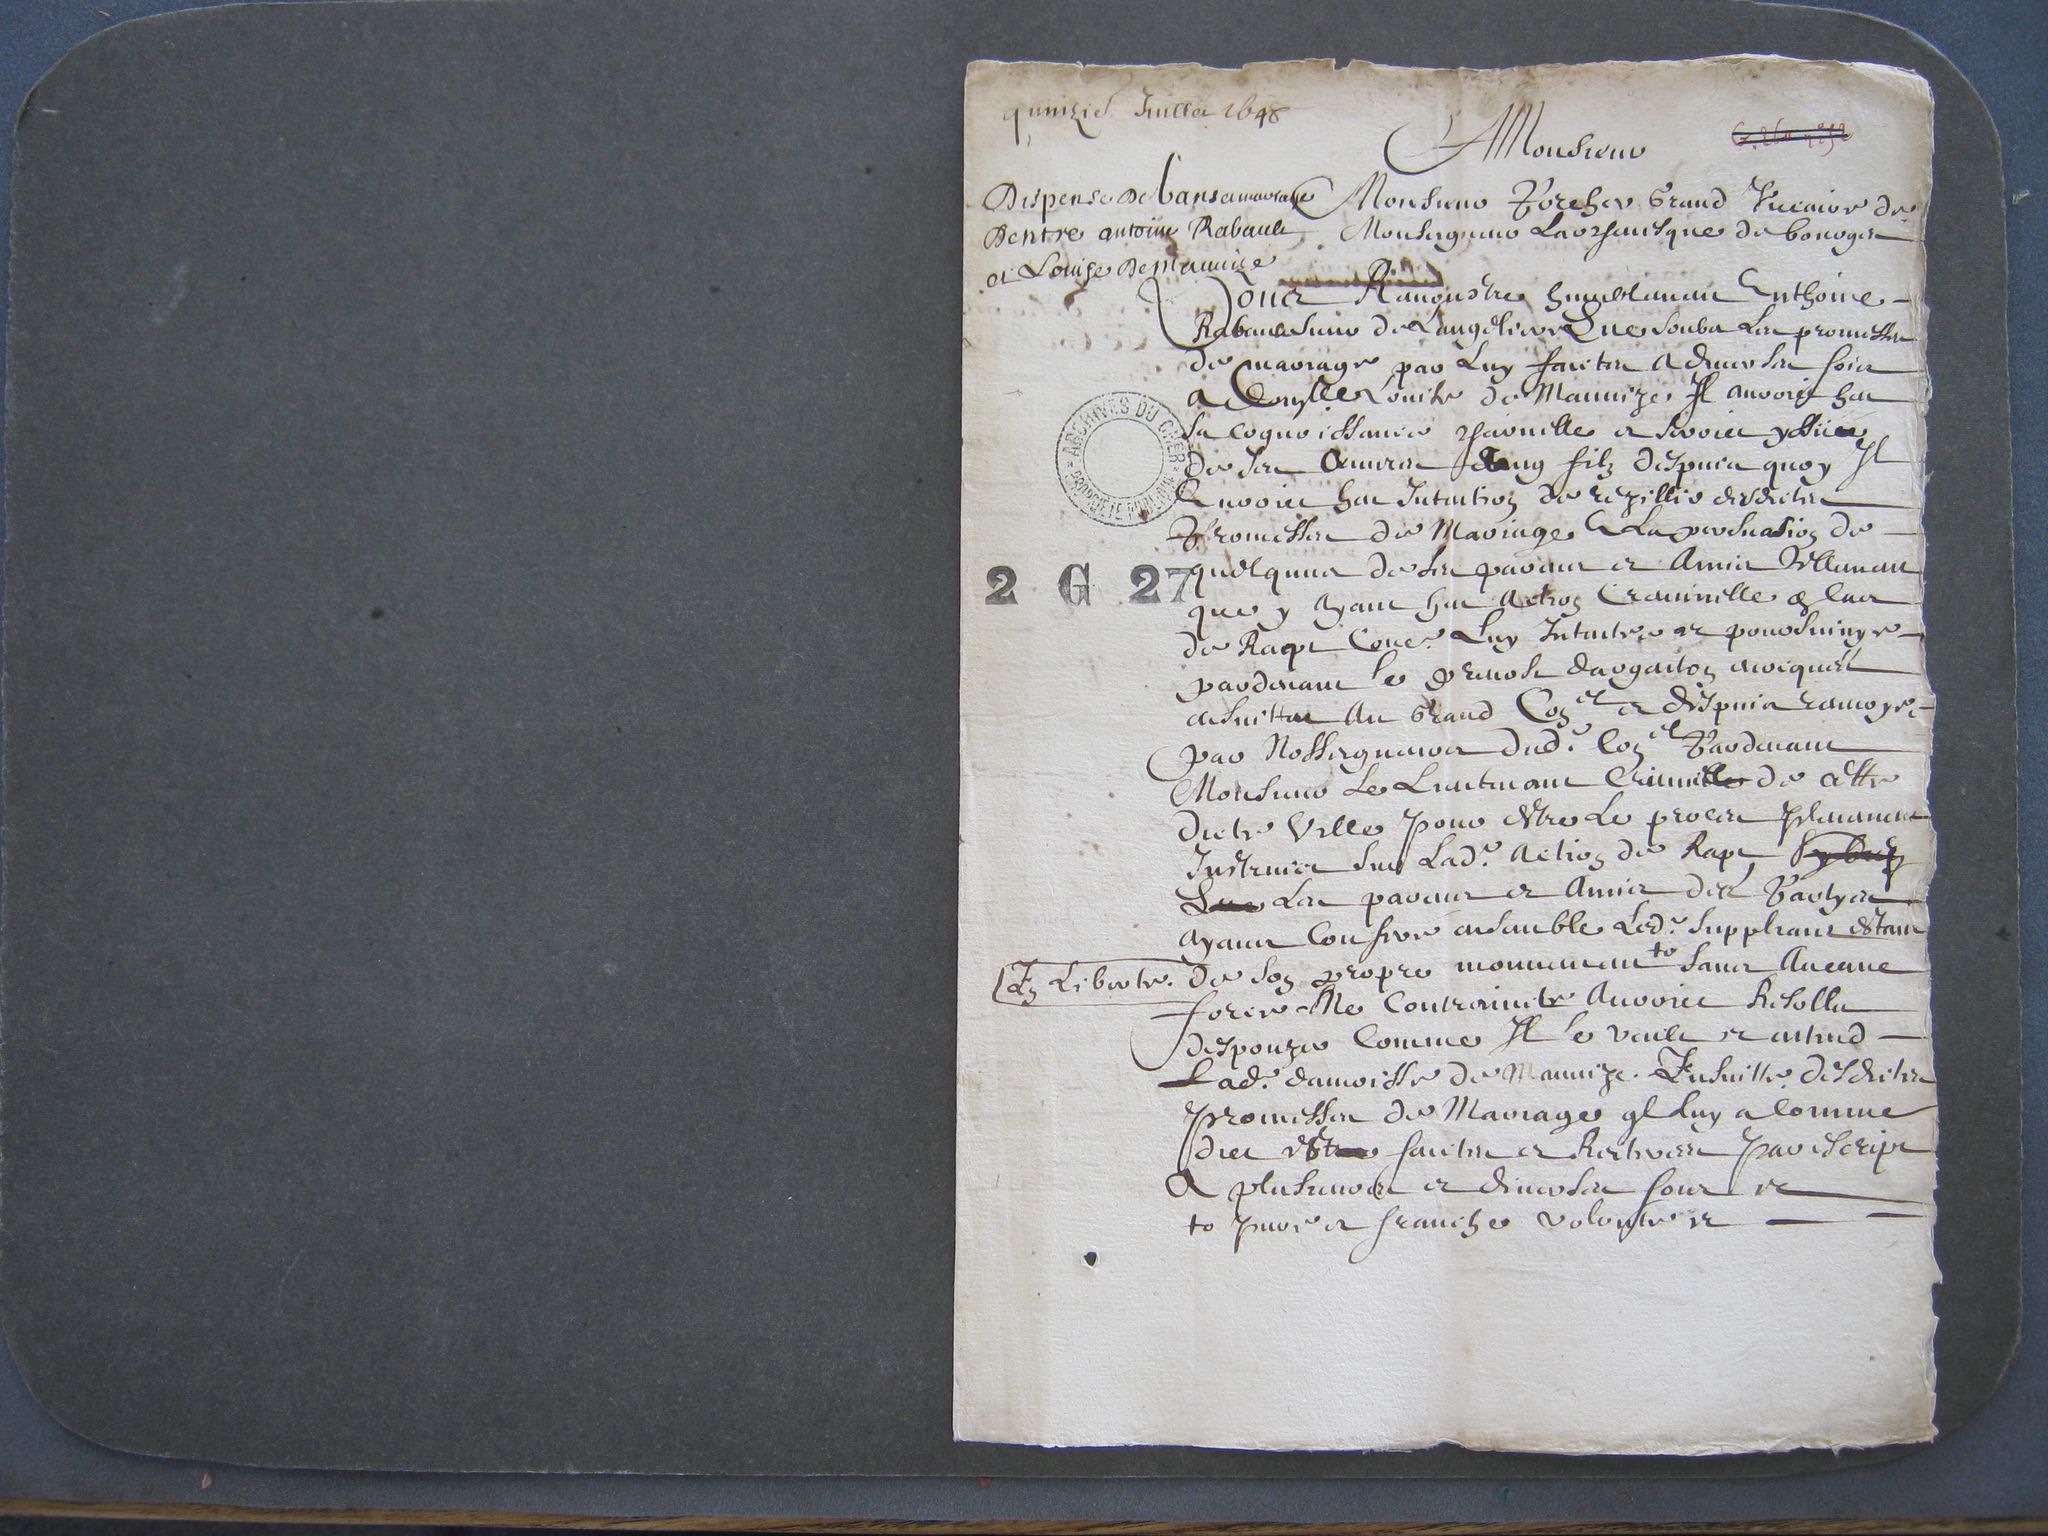 quinzie Juillet 1648
Monsieur
Dispense de bans de mariage
Dentre antoine Rabault
et Louise de Mannize
Monsieur Porcher Grand Viccaire de
Monseigneur Larchevesque de bourges
Vous Remonstre humblement Anthoine
Rabault sieur de Langeliere Que soubz les promesses
de mariage par Luy faictes a diverses fois
a Damylle Louise de Mannize Il auroict heu
sa cognoissance charnelle et seroict yssue
de ses œuvres Ung filz despuis quoy Il
Auroict heu Intention de rezillir desdictes
Promesses de Mariage A La persuasion de
quelques de ses parens et Amis Tellement
que y ayant heu Action Criminelle & Cas
de Rapt Conre Luy Intentee et poursuivye
pardevant le prevost dargenton
ensuitte Au Grand Conel et despuis ranvoyee
par Nosseigneurs dud. Conel Pardevant
Monsieur Le Lieutenant Criminel de cette
dicte Ville pour estre Le proces
Instruict sur Lad. Action de Rapt
Les parens et Amis des Partyes
ayant Confere ensemble Led. Suppliant estant
En Liberte. de son propre mouvement to sans Aucune
force Ne Contraincte Auroict Resollu
despouzer Comme Il le veult et entend
Lad. damoisse de Mannize. Ensuitte desdictes
promesses de Mariage ql Luy a Comme
dict est faictes et Reiterees par escript
A plusieurs et diverses fois et
to pure et franche volonte et
ARCHIVES DU CHER
PROPRIÉTÉ PUBLIQUE
2 G 27